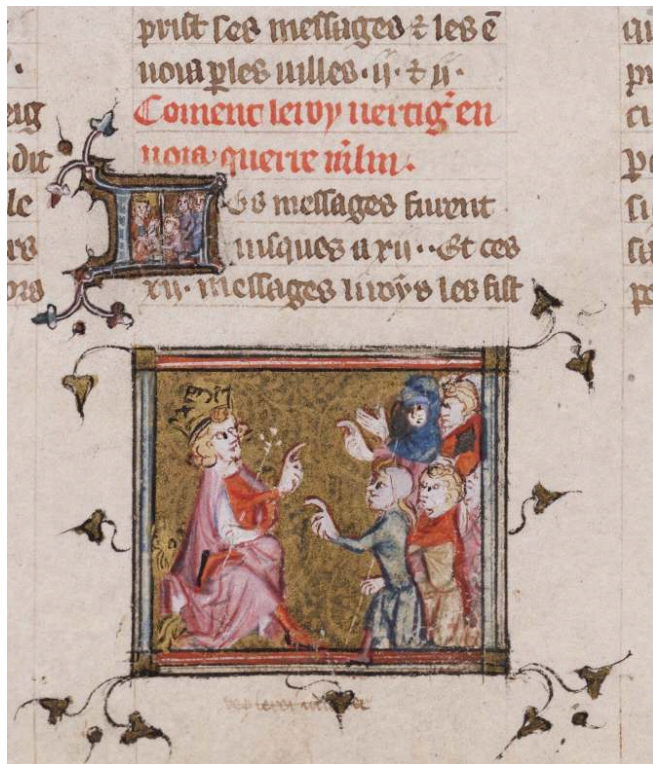 prist ses messages ⁊ les ē
uoia ꝑ les uilles · ij · ⁊ ij ·
Coment le roy uertig̾ en
uoia querre m̃lin .
es messages furent
iusques a xij · Et ces
xij · messages li roys les fist
eig
dit
le
rs
ors